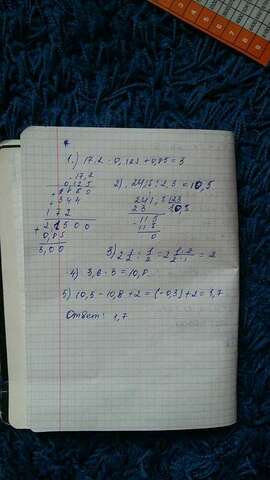 1.) 17,2 · 0,125 + 0,85 = 3
17,2
0,125
860
+ 344
172
2,1500
+ 0,85
3,00
2) 24,15 : 2,3 = 10,5
241,5 | 23
23 10,5
115
115
0
4) 3,6 · 3 = 10,8
5) 10,5 - 10,8 + 2 = (-0,3) + 2 = 1,7
Ответ: 1,7